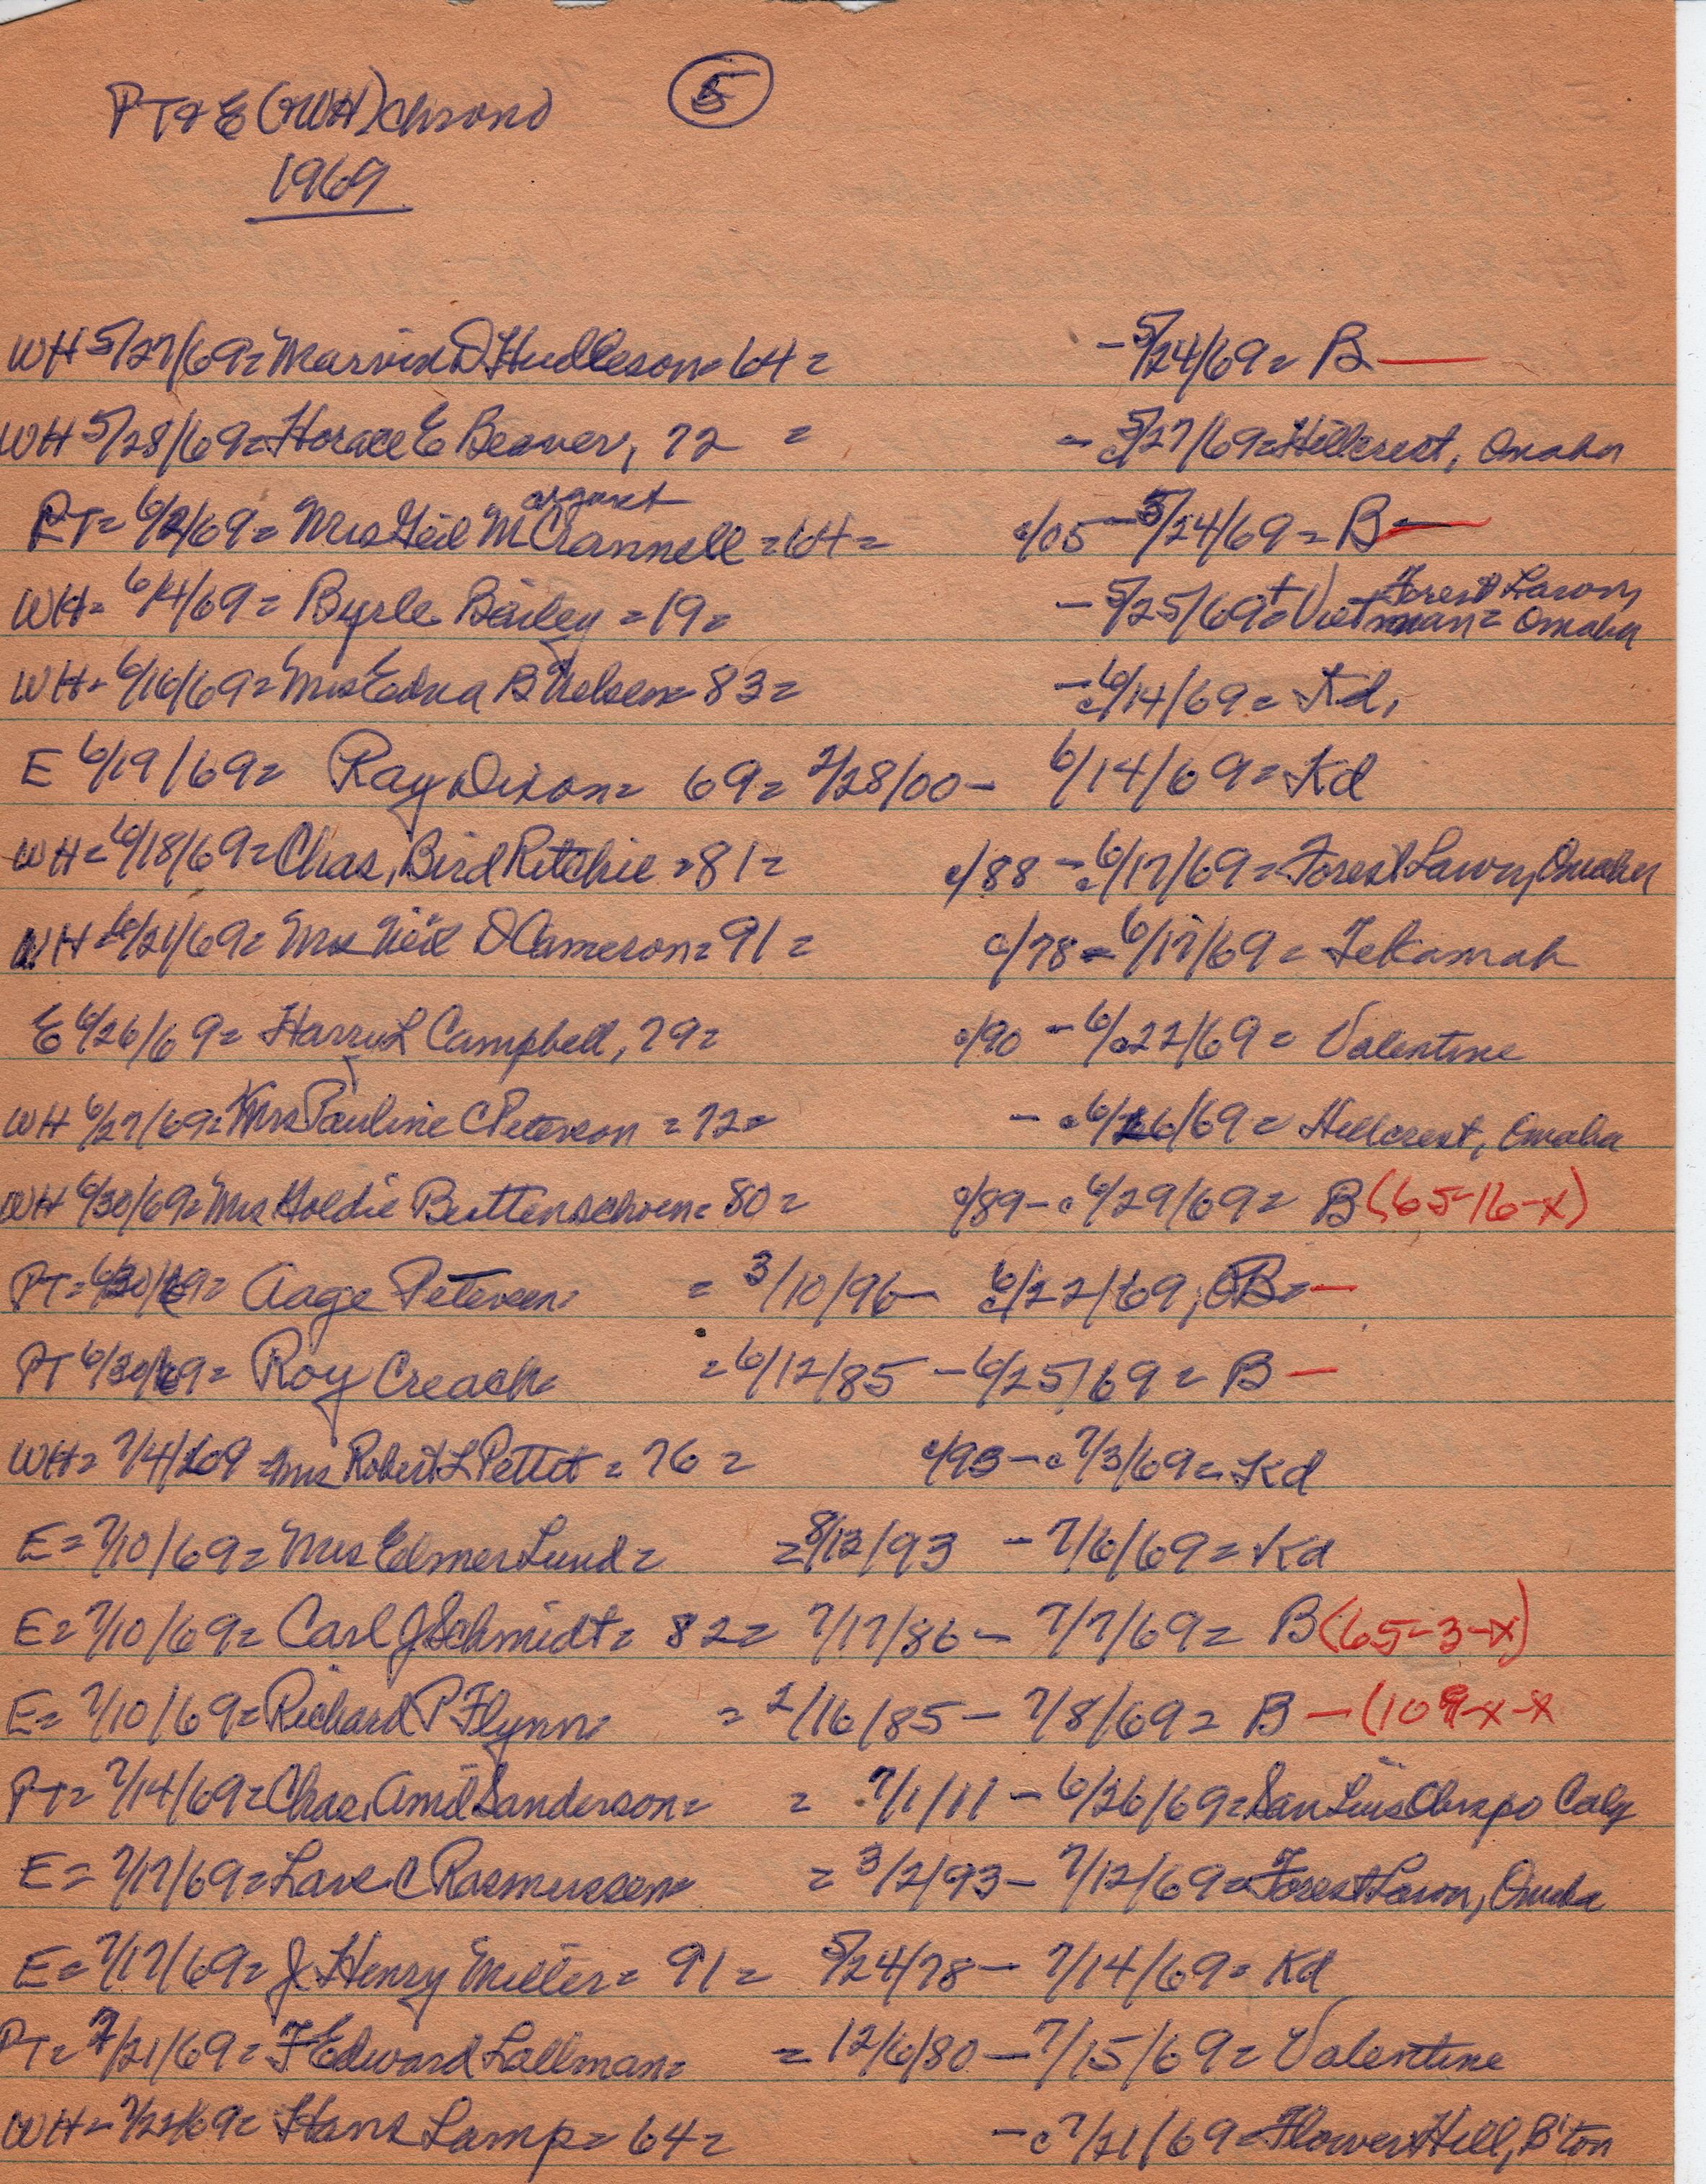 PT & E (& WH) chrono (5)
1969
WH 5/27/69= Marvin D Hudleson= 64= -5/24/69= B —
WH 5/28/69= Horace E Beaver, 72 = - c5/27/69= Hillcrest, Omaha
argaret
PT= 6/2/69= Mrs Neil M Crannell =64= c/05 - 5/24/69= B —
Forest Lawn,
WH= 6/4/69= Byrle Bailey =19= - 5/25/69+= Vietnam= Omaha
WH= 6/16/69= Mrs Edna B Nelsen= 83= - c6/14/69= Kd,
E 6/19/69= Ray Dixon= 69= 2/28/00- 6/14/69= Kd
WH= 6/18/69= Chas. Bird Ritchie =81= c/88 - c6/17/69= Forest Lawn, Omaha
WH= 6/21/69= Mrs Neil D Cameron= 91= c/78 - 6/17/69= Tekamah
E 6/26/69= Harry L Campbell, 79= c/90 - 6/22/69= Valentine
WH 6/27/69= Mrs Pauline C Peterson =72= - c6/26/69= Hillcrest, Omaha
WH 6/30/69= Mrs Goldie Buttenschoen= 80= c/89- c6/29/69= B (65-16-x)
PT= 6/30/69= Aage Petersen= = 3/10/96- c6/22/69, B= —
PT 6/30/69= Roy Creach= = 6/12/85 - 6/25/69= B —
WH= 7/4/69 = Mrs Robert L Pettit = 76 = c/93 - c7/3/69= Kd
E= 7/10/69= Mrs Elmer Lund= = 8/12/93 - 7/6/69= Kd
E= 7/10/69= Carl J Schmidt= 82= 7/17/86- 7/7/69= B (65-3-x)
E= 7/10/69= Richard P Flynn= = 2/16/85- 7/8/69= B - (109-x-x
PT= 7/14/69= Chas. Amil Sanderson= = 7/1/11 - 6/26/69= San Luis Obispo Calif
E= 7/17/69= Lars C Rasmussen= = 3/2/93- 7/12/69= Forest Lawn, Omaha
E= 7/17/69= J Henry Miller= 91= 5/24/78- 7/14/69= Kd
PT= 7/21/69= F Edward Lallman= = 12/6/80 - 7/15/69= Valentine
WH= 7/22/69= Hans Lamp= 64= - c7/21/69= Flower Hill, B'ton